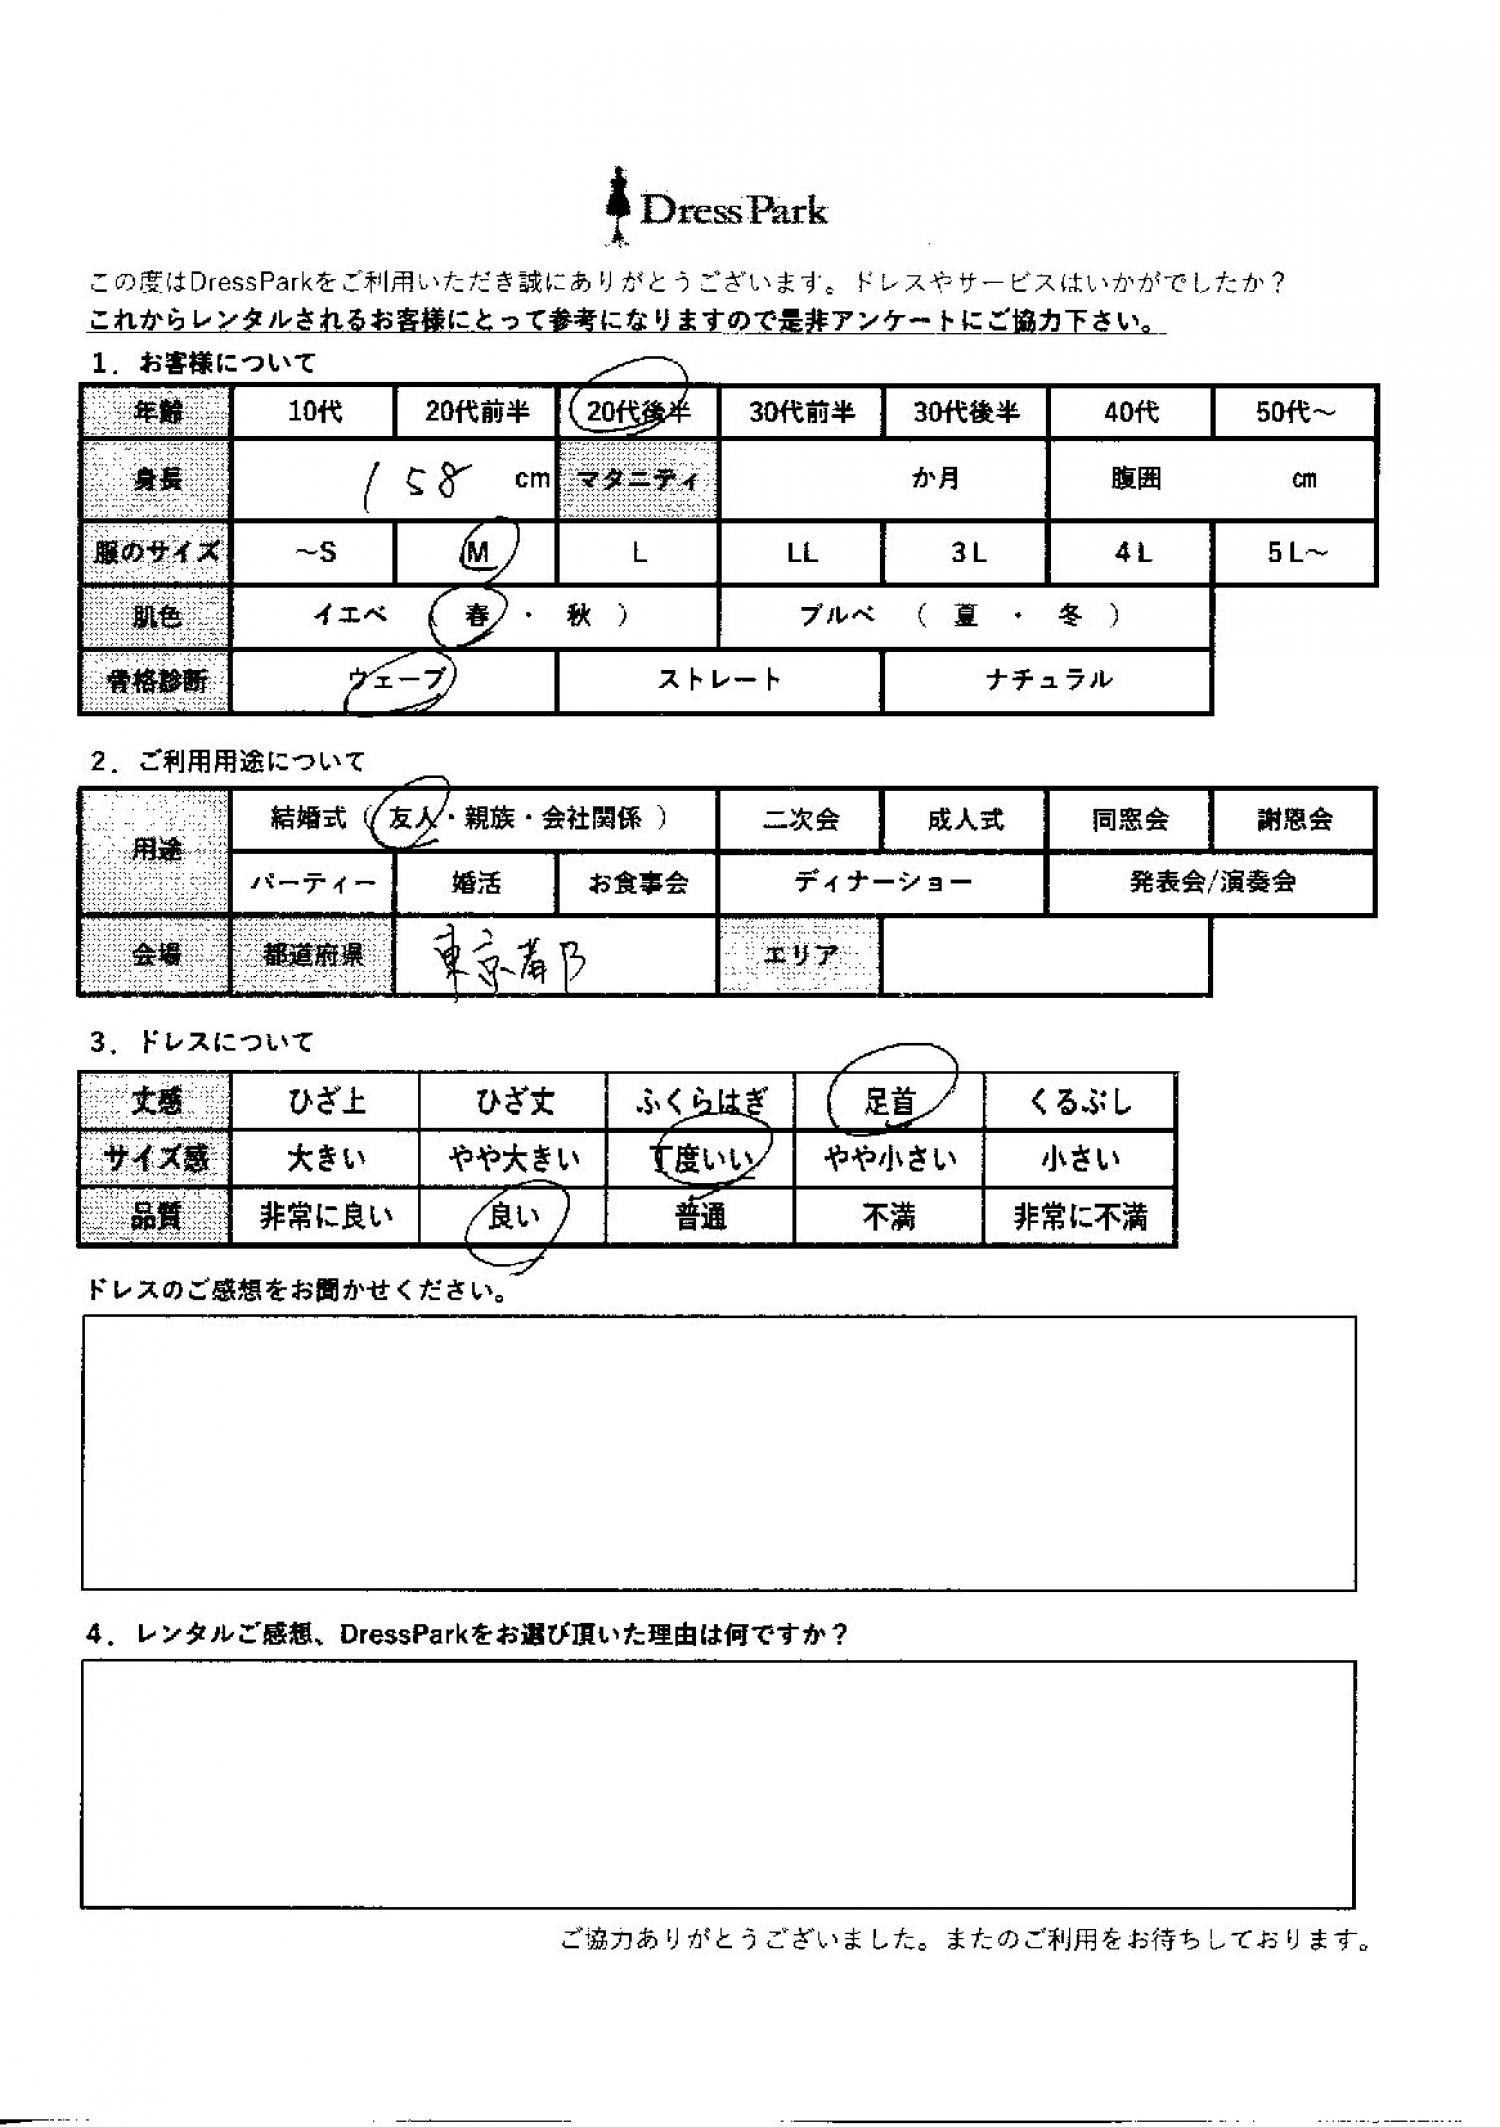 DressPark
この度はDressParkをご利用いただき誠にありがとうございます。ドレスやサービスはいかがでしたか？
これからレンタルされるお客様にとって参考になりますので是非アンケートにご協力下さい。
1．お客様について
年齢 10代 20代前半 20代後半 30代前半 30代後半 40代 50代～
身長 158 cm マタニティ か月 腹囲 cm
服のサイズ ～S M L LL 3L 4L 5L～
肌色 イエベ （ 春 ・ 秋 ） ブルベ （ 夏 ・ 冬 ）
骨格診断 ウェーブ ストレート ナチュラル
2．ご利用用途について
用途 結婚式（友人・親族・会社関係） 二次会 成人式 同窓会 謝恩会
パーティー 婚活 お食事会 ディナーショー 発表会/演奏会
会場 都道府県 東京都 エリア
3．ドレスについて
丈感 ひざ上 ひざ丈 ふくらはぎ 足首 くるぶし
サイズ感 大きい やや大きい 丁度いい やや小さい 小さい
品質 非常に良い 良い 普通 不満 非常に不満
ドレスのご感想をお聞かせください。
4．レンタルご感想、DressParkをお選び頂いた理由は何ですか？
ご協力ありがとうございました。またのご利用をお待ちしております。